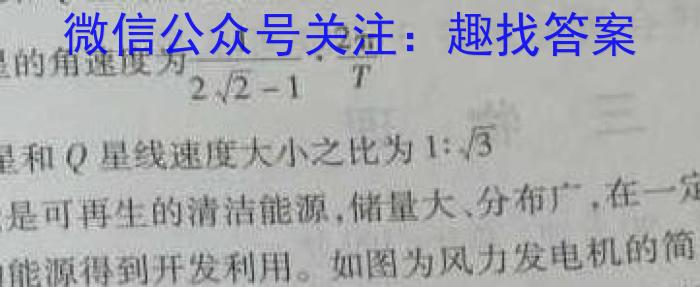 微信公众号关注：趣找答案
的角速度为 1/(2√2-1) · 2π/T
星和 Q 星线速度大小之比为 1:√3
是可再生的清洁能源,储量大、分布广,在一定
能源得到开发利用。如图为风力发电机的简